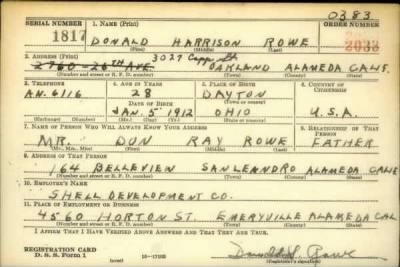 0383
SERIAL NUMBER 1. NAME (Print) ORDER NUMBER
1817 DONALD HARRISON ROWE 2033
(First) (Middle) (Last)
2. ADDRESS (Print) 3027 Capp St.
2760 - 26TH AVE. OAKLAND ALAMEDA CALIF.
(Number and street or R. F. D. number) (Town) (County) (State)
3. TELEPHONE 4. AGE IN YEARS 5. PLACE OF BIRTH 6. COUNTRY OF CITIZENSHIP
AN. 6116 28 DAYTON
DATE OF BIRTH (Town or county)
JAN. 5 1912 OHIO U.S.A.
(Exchange) (Number) (Mo.) (Day) (Yr.) (State or country)
7. NAME OF PERSON WHO WILL ALWAYS KNOW YOUR ADDRESS 8. RELATIONSHIP OF THAT PERSON
MR. DUN RAY ROWE FATHER
(Mr., Mrs., Miss) (First) (Middle) (Last)
9. ADDRESS OF THAT PERSON
164 BELLEVIEW SAN LEANDRO ALAMEDA CALIF
(Number and street or R. F. D. number) (Town) (County) (State)
10. EMPLOYER'S NAME
SHELL DEVELOPMENT CO.
11. PLACE OF EMPLOYMENT OR BUSINESS
4560 HORTON ST. EMERYVILLE ALAMEDA CAL
(Number and street or R. F. D. number) (Town) (County) (State)
I AFFIRM THAT I HAVE VERIFIED ABOVE ANSWERS AND THAT THEY ARE TRUE.
REGISTRATION CARD
D. S. S. Form 1 (over) 16-17105 Rowe
(Registrant's signature)